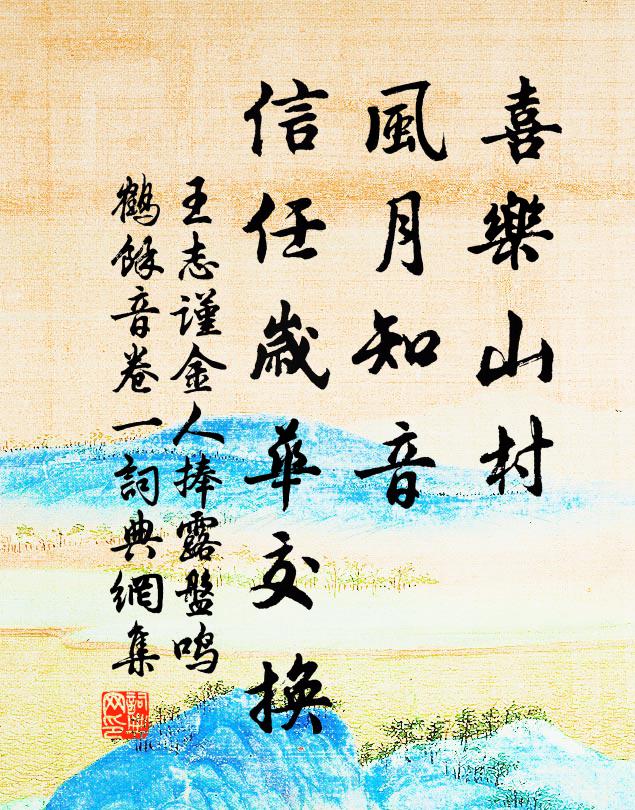 喜樂山村
風月知音
信任歲華交換
王志謹金人捧露盤鳴
鶴餘音卷一詞典網集